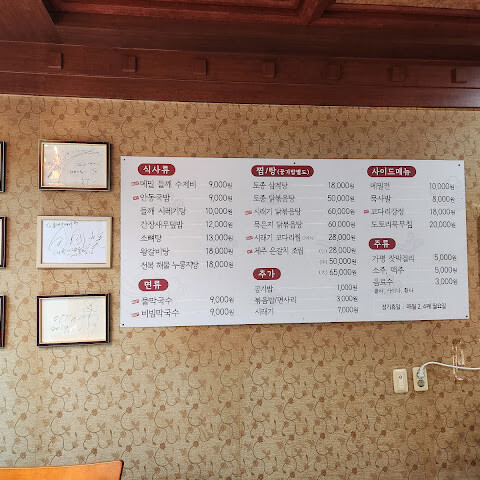 식사류
메밀 들깨 수제비 9,000원
안동국밥 9,000원
들깨 시래기탕 10,000원
간장새우덮밥 12,000원
소뼈탕 13,000원
왕갈비탕 18,000원
전복 해물 누룽지탕 18,000원
면류
물막국수 9,000원
비빔막국수 9,000원
찜/탕(공기밥별도)
토종 삼계탕 18,000원
토종 닭볶음탕 50,000원
시래기 닭볶음탕 60,000원
묵은지 닭볶음탕 60,000원
시래기 코다리찜 28,000원
제주 은갈치 조림 28,000원
50,000원
65,000원
추가
공기밥 1,000원
볶음밥/면사리 3,000원
시래기 7,000원
사이드메뉴
메밀전 10,000원
육사발 8,000원
코다리강정 18,000원
도토리묵무침 20,000원
주류
가평 잣막걸리 5,000원
소주, 맥주 5,000원
음료수 3,000원
콜라, 사이다, 환타
정기휴일 : 매월 2, 4째 월요일